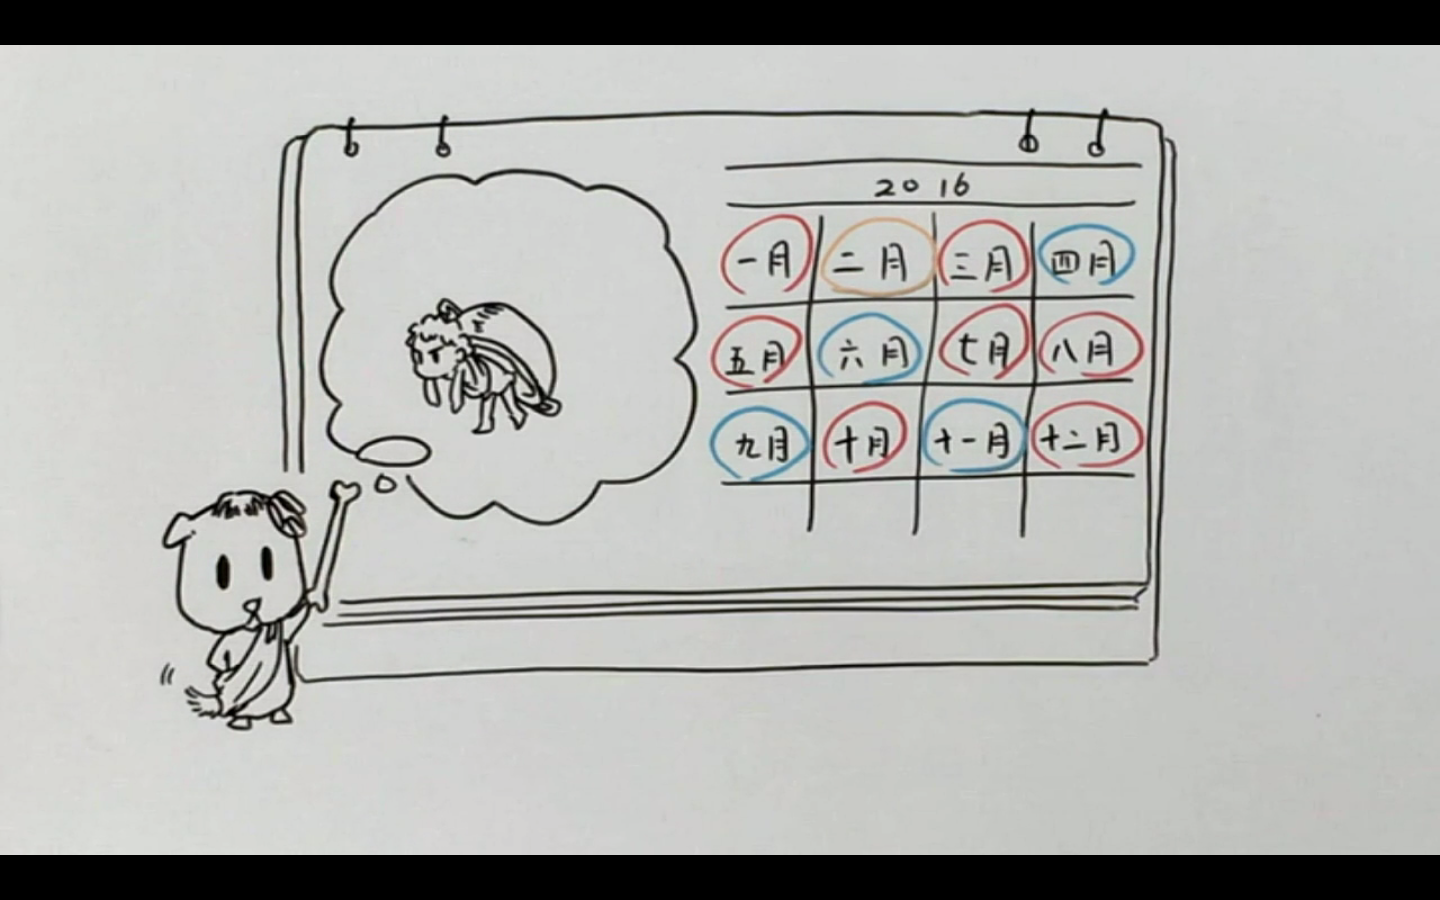 2016
一月 二月 三月 四月
五月 六月 七月 八月
九月 十月 十一月 十二月